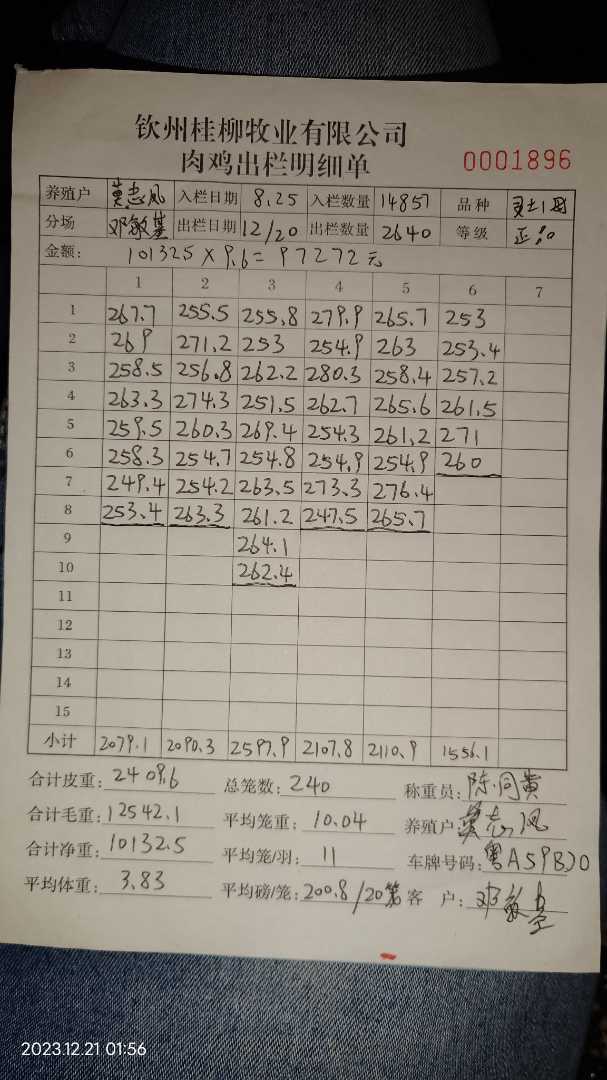 钦州桂柳牧业有限公司
肉鸡出栏明细单 0001896
养殖户 莫志凤 入栏日期 8.25 入栏数量 14857 品种
分场 邓敏基 出栏日期 12/20 出栏数量 2640 等级 正
金额: 101325 × 9.6 = 97272元
1 2 3 4 5 6 7
1 267.7 255.5 255.8 279.9 265.7 253
2 269 271.2 253 254.9 263 253.4
3 258.5 256.8 262.2 280.3 258.4 257.2
4 263.3 274.3 251.5 262.7 265.6 261.5
5 259.5 260.3 269.4 254.3 261.2 271
6 258.3 254.7 254.8 254.9 254.9 260
7 249.4 254.2 263.5 273.3 276.4
8 253.4 263.3 261.2 247.5 265.7
9 264.1
10 262.4
11
12
13
14
15
小计 2079.1 2090.3 2597.9 2107.8 2110.9 1556.1
合计皮重: 2409.6 总笼数: 240 称重员: 陈同贵
合计毛重: 12542.1 平均笼重: 10.04 养殖户 莫志凤
合计净重: 10132.5 平均笼/羽: 11 车牌号码: 粤A59BJ0
平均体重: 3.83 平均磅/笼: 200.8/20 客户: 邓敏基
2023.12.21 01:56